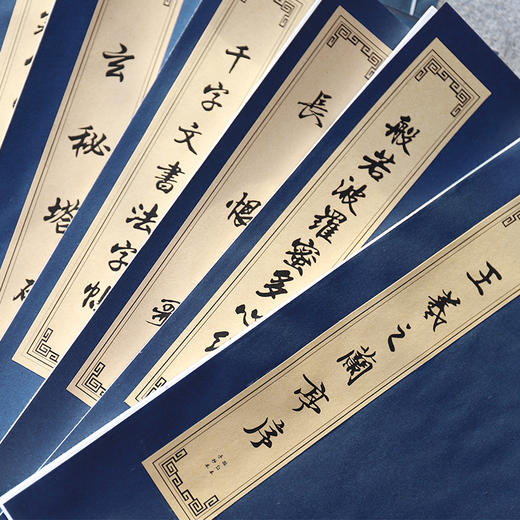 玄秘塔碑
千字文書法字帖
長恨歌
般若波羅蜜多心經
王羲之蘭亭序